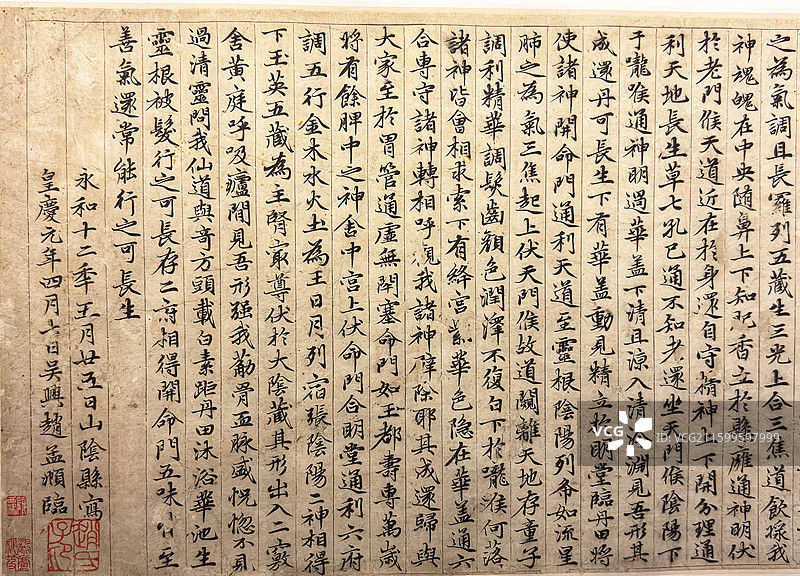 之為氣調且長羅列五藏生三光上合三焦道飲醪我
神魂魄在中央随鼻上下知肥香立於縣膺通神明伏
於老門候天道近在於身還自守精神上下開分理通
利天地長生草七孔已通不知老還坐天門候陰陽下
于嚨喉通神明過華盖下清且涼入清泠淵見吾形其
成還丹可長生下有華盖動見精立於明堂臨丹田将
使諸神開命門通利天道至靈根陰陽列布如流星
肺之為氣三焦起上伏天門候故道闚離天地存童子
調利精華調髮齒顔色潤澤不復白下於嚨喉何落
諸神皆會相求索下有絳宮紫華色隐在華盖通六
合專守諸神轉相呼觀我諸神辟除耶其成還歸與
大家至於胃管通虛無閉塞命門如玉都壽專萬歲
将有餘脾中之神舍中宮上伏命門合明堂通利六府
調五行金木水火土為王日月列宿張陰陽二神相得
下玉英五藏為主腎寂尊伏於大陰藏其形出入二竅
舍黄庭呼吸廬間見吾形强我筋骨血脉盛恍惚不見
過清靈問我仙道與竒方頭載白素距丹田沐浴華池生
靈根被髮行之可長存二府相得開命門五味 至
善氣還常能行之可長生
永和十二年五月廿五日山陰縣寫
皇慶元年四月七日吴興趙孟頫臨
趙氏子昂
VCG.COM
ID: VCG211599597999